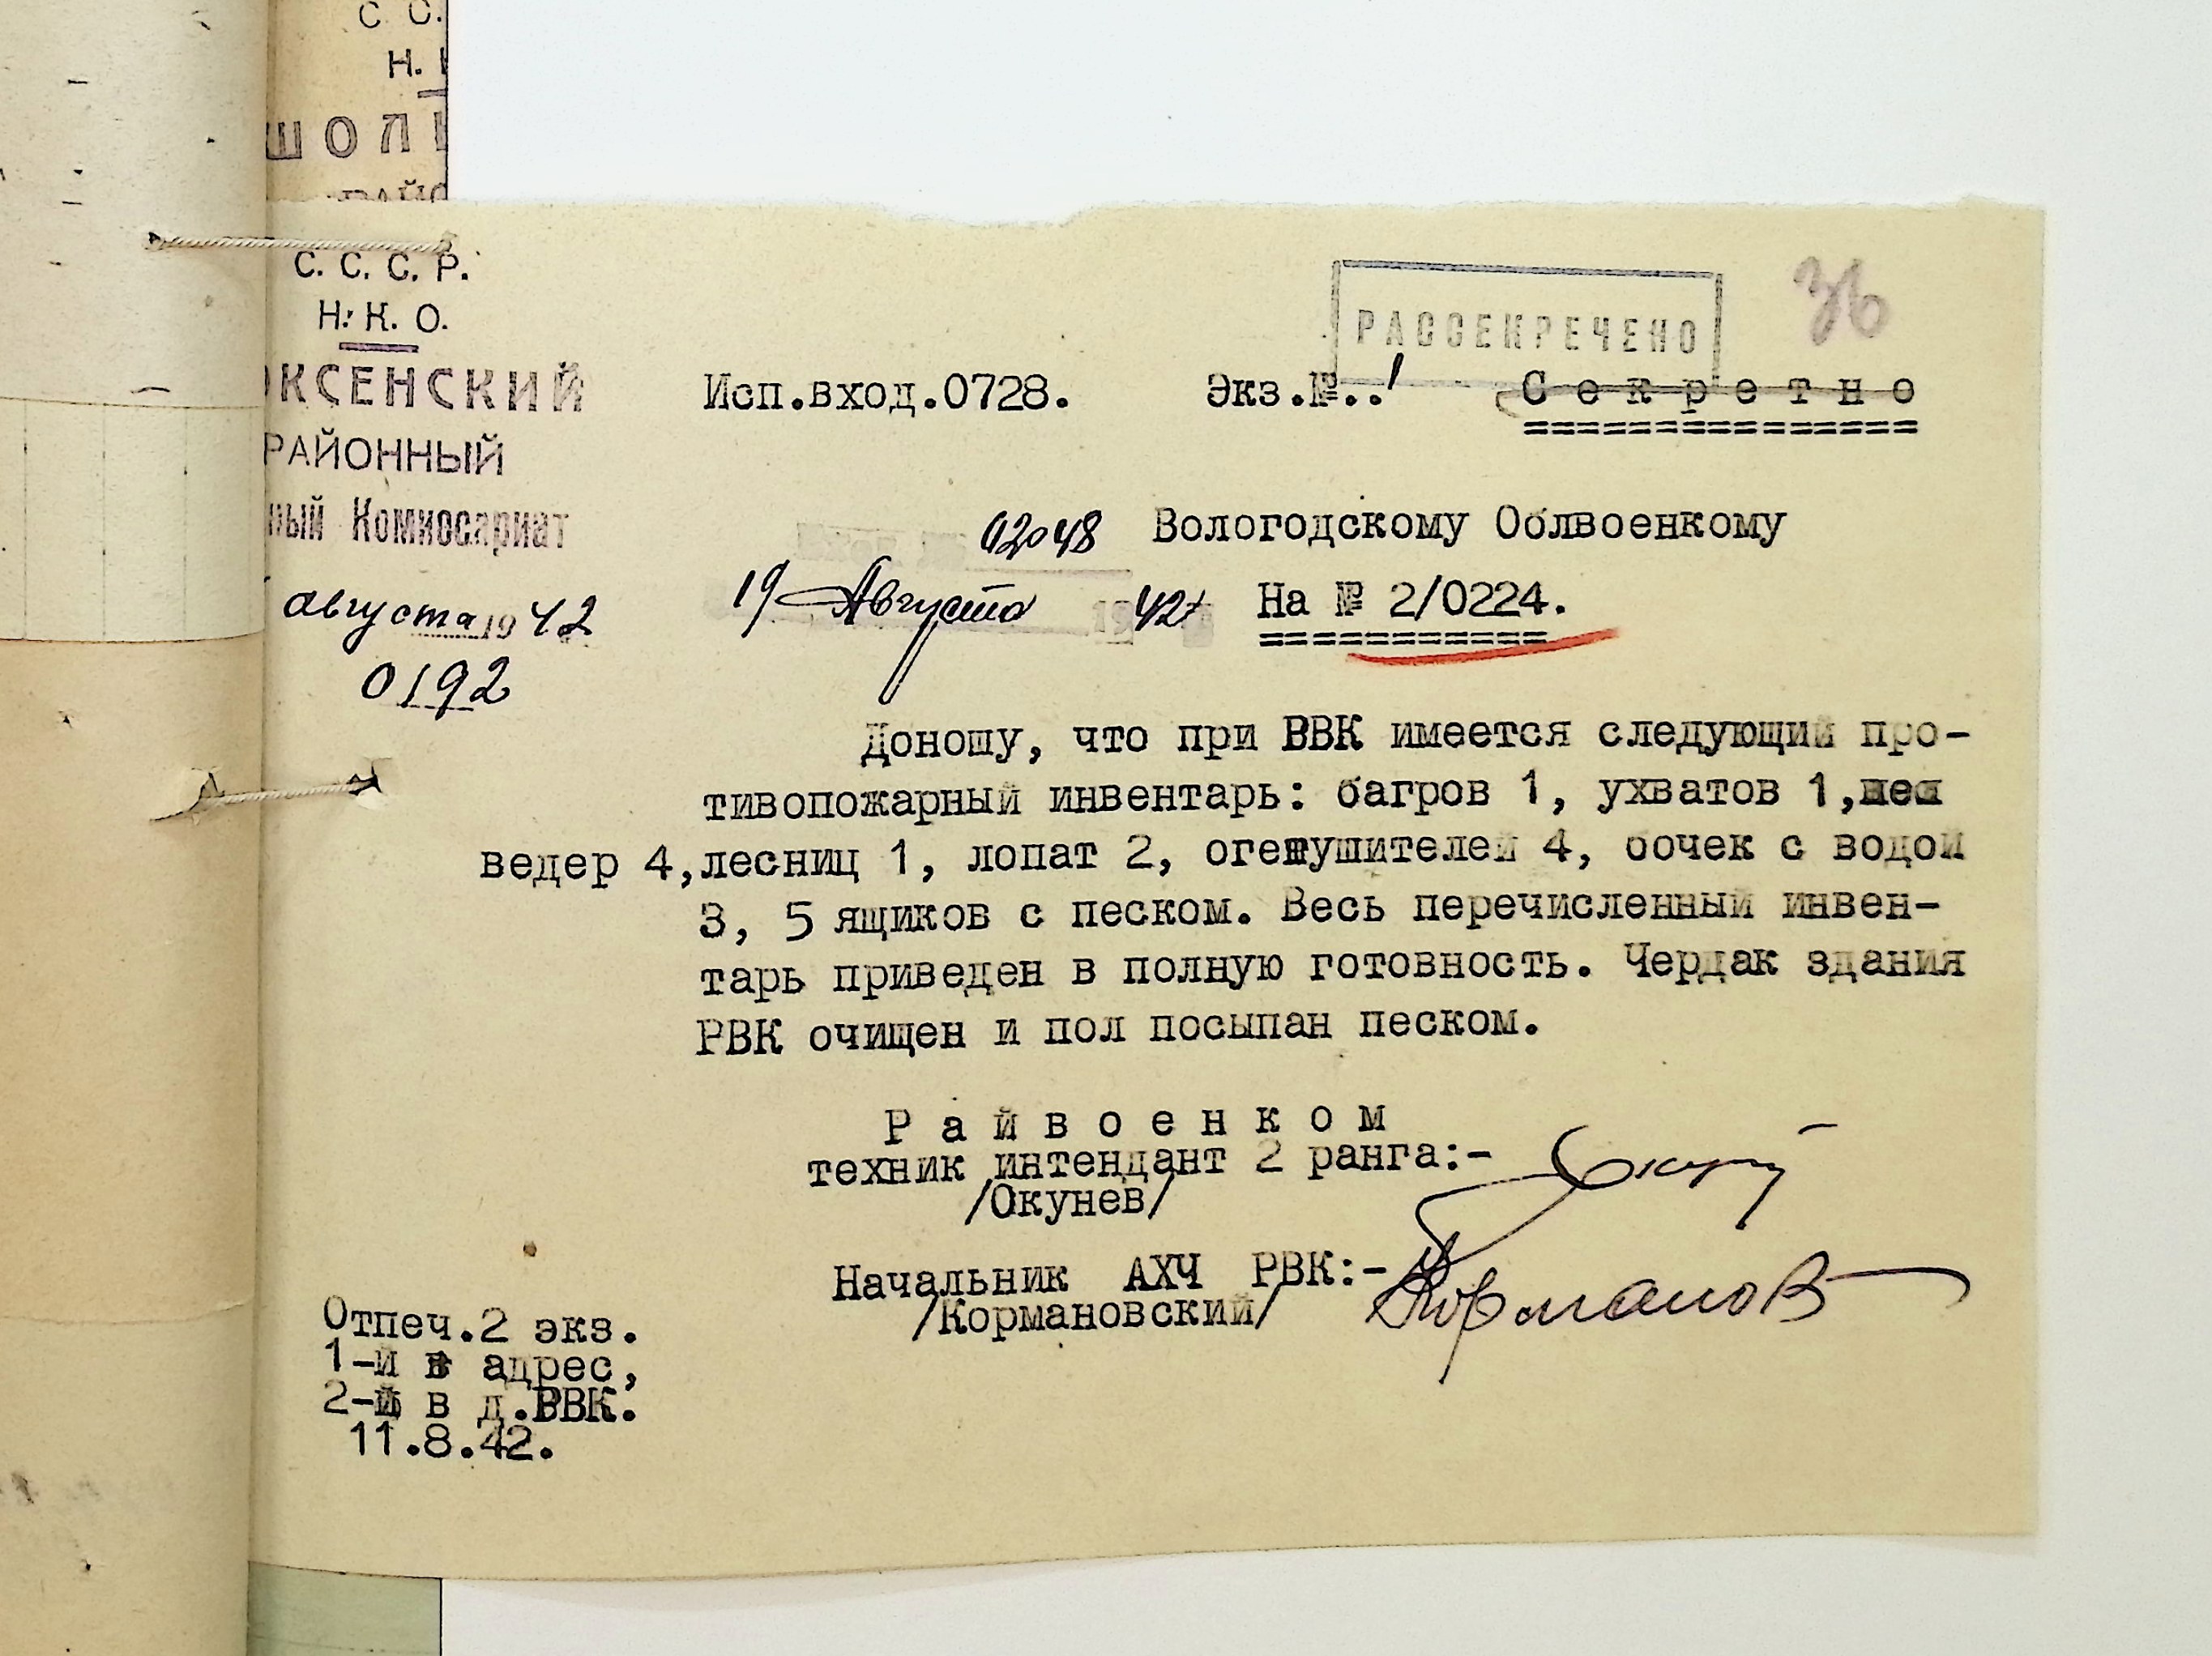 С. С.
Н.
ШОЛ
РАЙО
С. С. С. Р.
Н. К. О.
ОКСЕНСКИЙ
РАЙОННЫЙ
ный Комиссариат
августа 1942
0192
РАССЕКРЕЧЕНО
36
Исп.вход.0728. Экз.№..1 Секретно
02048 Вологодскому Облвоенкому
19 Августа 1942 На № 2/0224.
Доношу, что при РВК имеется следующий про-
тивопожарный инвентарь: багров 1, ухватов 1,
ведер 4,лесниц 1, лопат 2, огетушителей 4, бочек с водой
3, 5 ящиков с песком. Весь перечисленный инвен-
тарь приведен в полную готовность. Чердак здания
РВК очищен и пол посыпан песком.
Райвоенком
техник интендант 2 ранга:-
/Окунев/
Начальник АХЧ РВК:- Корманов
/Кормановский/
Отпеч.2 экз.
1-й в адрес,
2-й в д.РВК.
11.8.42.